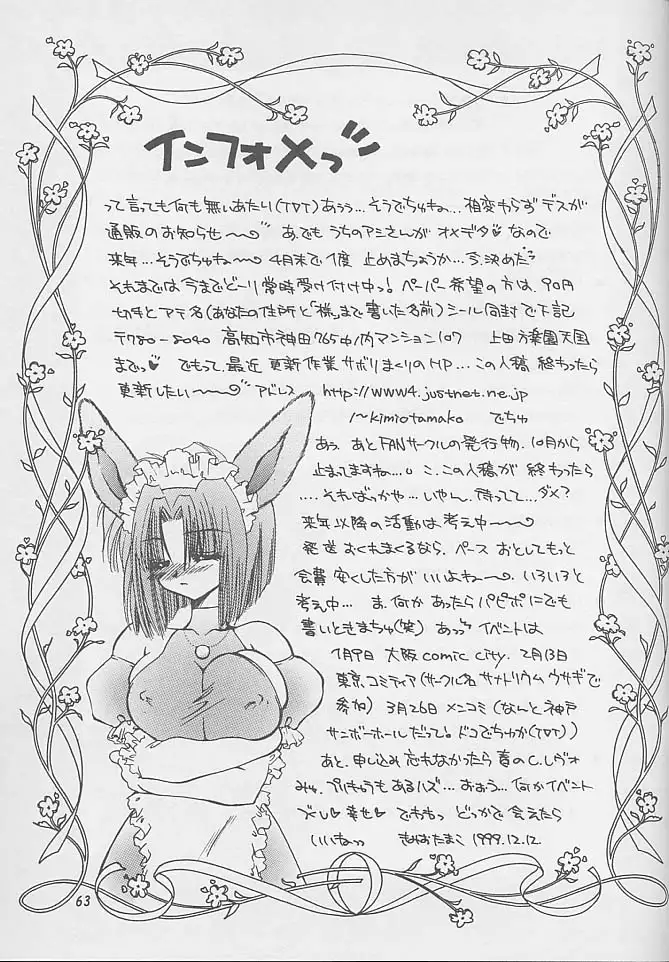 インフォメっ
って言っても何も無いあたり(TДT)あぅぅ…そうでちゅね…相変わらずデスが
通販のお知らせ〜〜 あ、でも うちのアミさんが オメデタ♡なので
来年…そうでちゅね〜 4月末で1度 止めまちょうか…今、決めた?
それまでは今までど〜り常時受け付け中っ! ペーパー希望の方は、90円
切手とアテ名(あなたの住所と「様」まで書いた名前)シール同封で下記
〒780-8040 高知市神田765 マンション107 上田方楽園天国
までっ♥ でもって、最近 更新作業サボりまくりのHP…この人稿 終わったら
更新したい〜〜 アドレス http://www4.justnet.ne.jp
/~kimiotamako でちゅ
あぅ、あとFANサークルの発行物、10月から
止まってますね… こ、この人稿が 終わったら
….そればっかや…いやん、待ってて…ダメ?
来年以降の活動は考え中〜〜
発送おくれまくるなら、ペース おとしてもっと
会費 安くした方が いいよね〜、いろいろと
考え中… ま、何か あったら パピポにでも
書いときまちゅ(笑) あっっ イベントは
1月9日 大阪 comic city、2月13日
東京コミティア(サークル名 サナトリウムウサギで
参加) 3月26日 メンコミ(なんと神戸
サンボーホールだって!ドコでちゅか(TДT))
あと、申し込み 忘れなかったら 春のC.レヴォ
みゅ、プリきゃらもあるハズ…おおぅ…何かイベント
ズレ♡幸せ♡ でももっ どっかで 会えたら
いいなっっ きみおたまこ 1999.12.12.
63